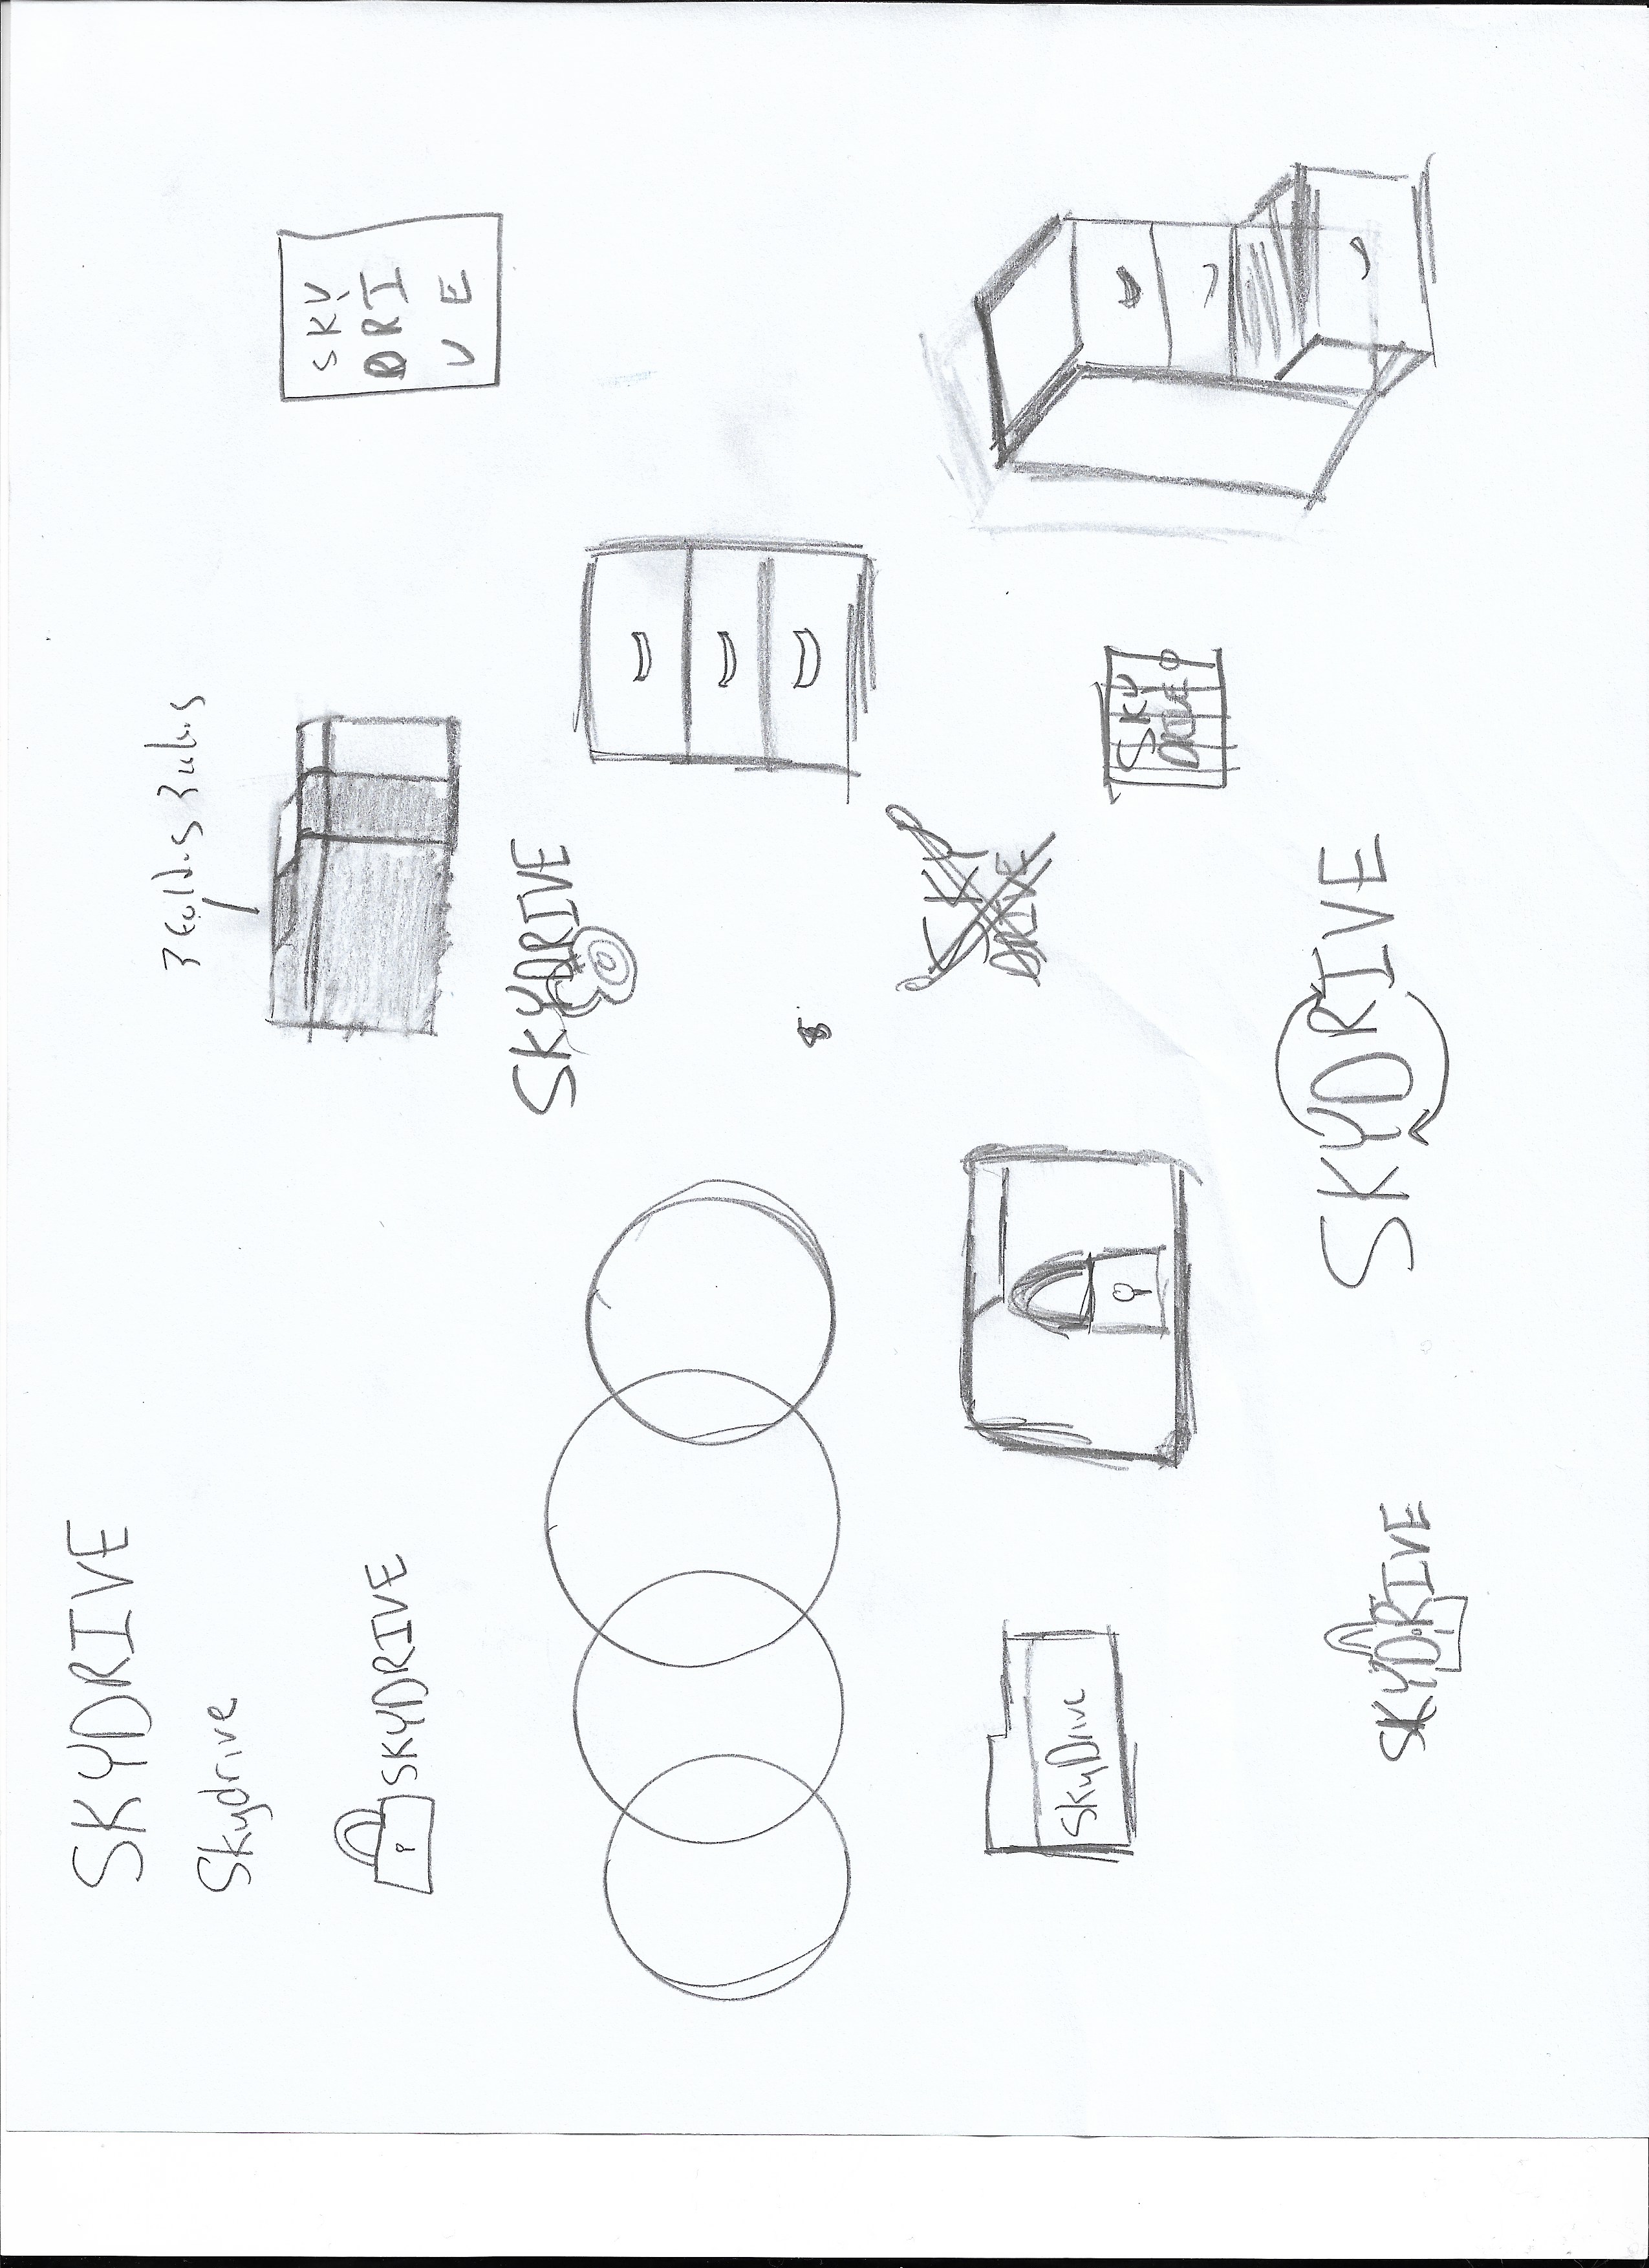 SKYDRIVE
Skydrive
SKYDRIVE
3 folders 3 colors
SKY
DRI
VE
SKYDRIVE
SKY
DRIVE
SkyDrive
SKY
DRIVE
SKYDRIVE
SKYDRIVE